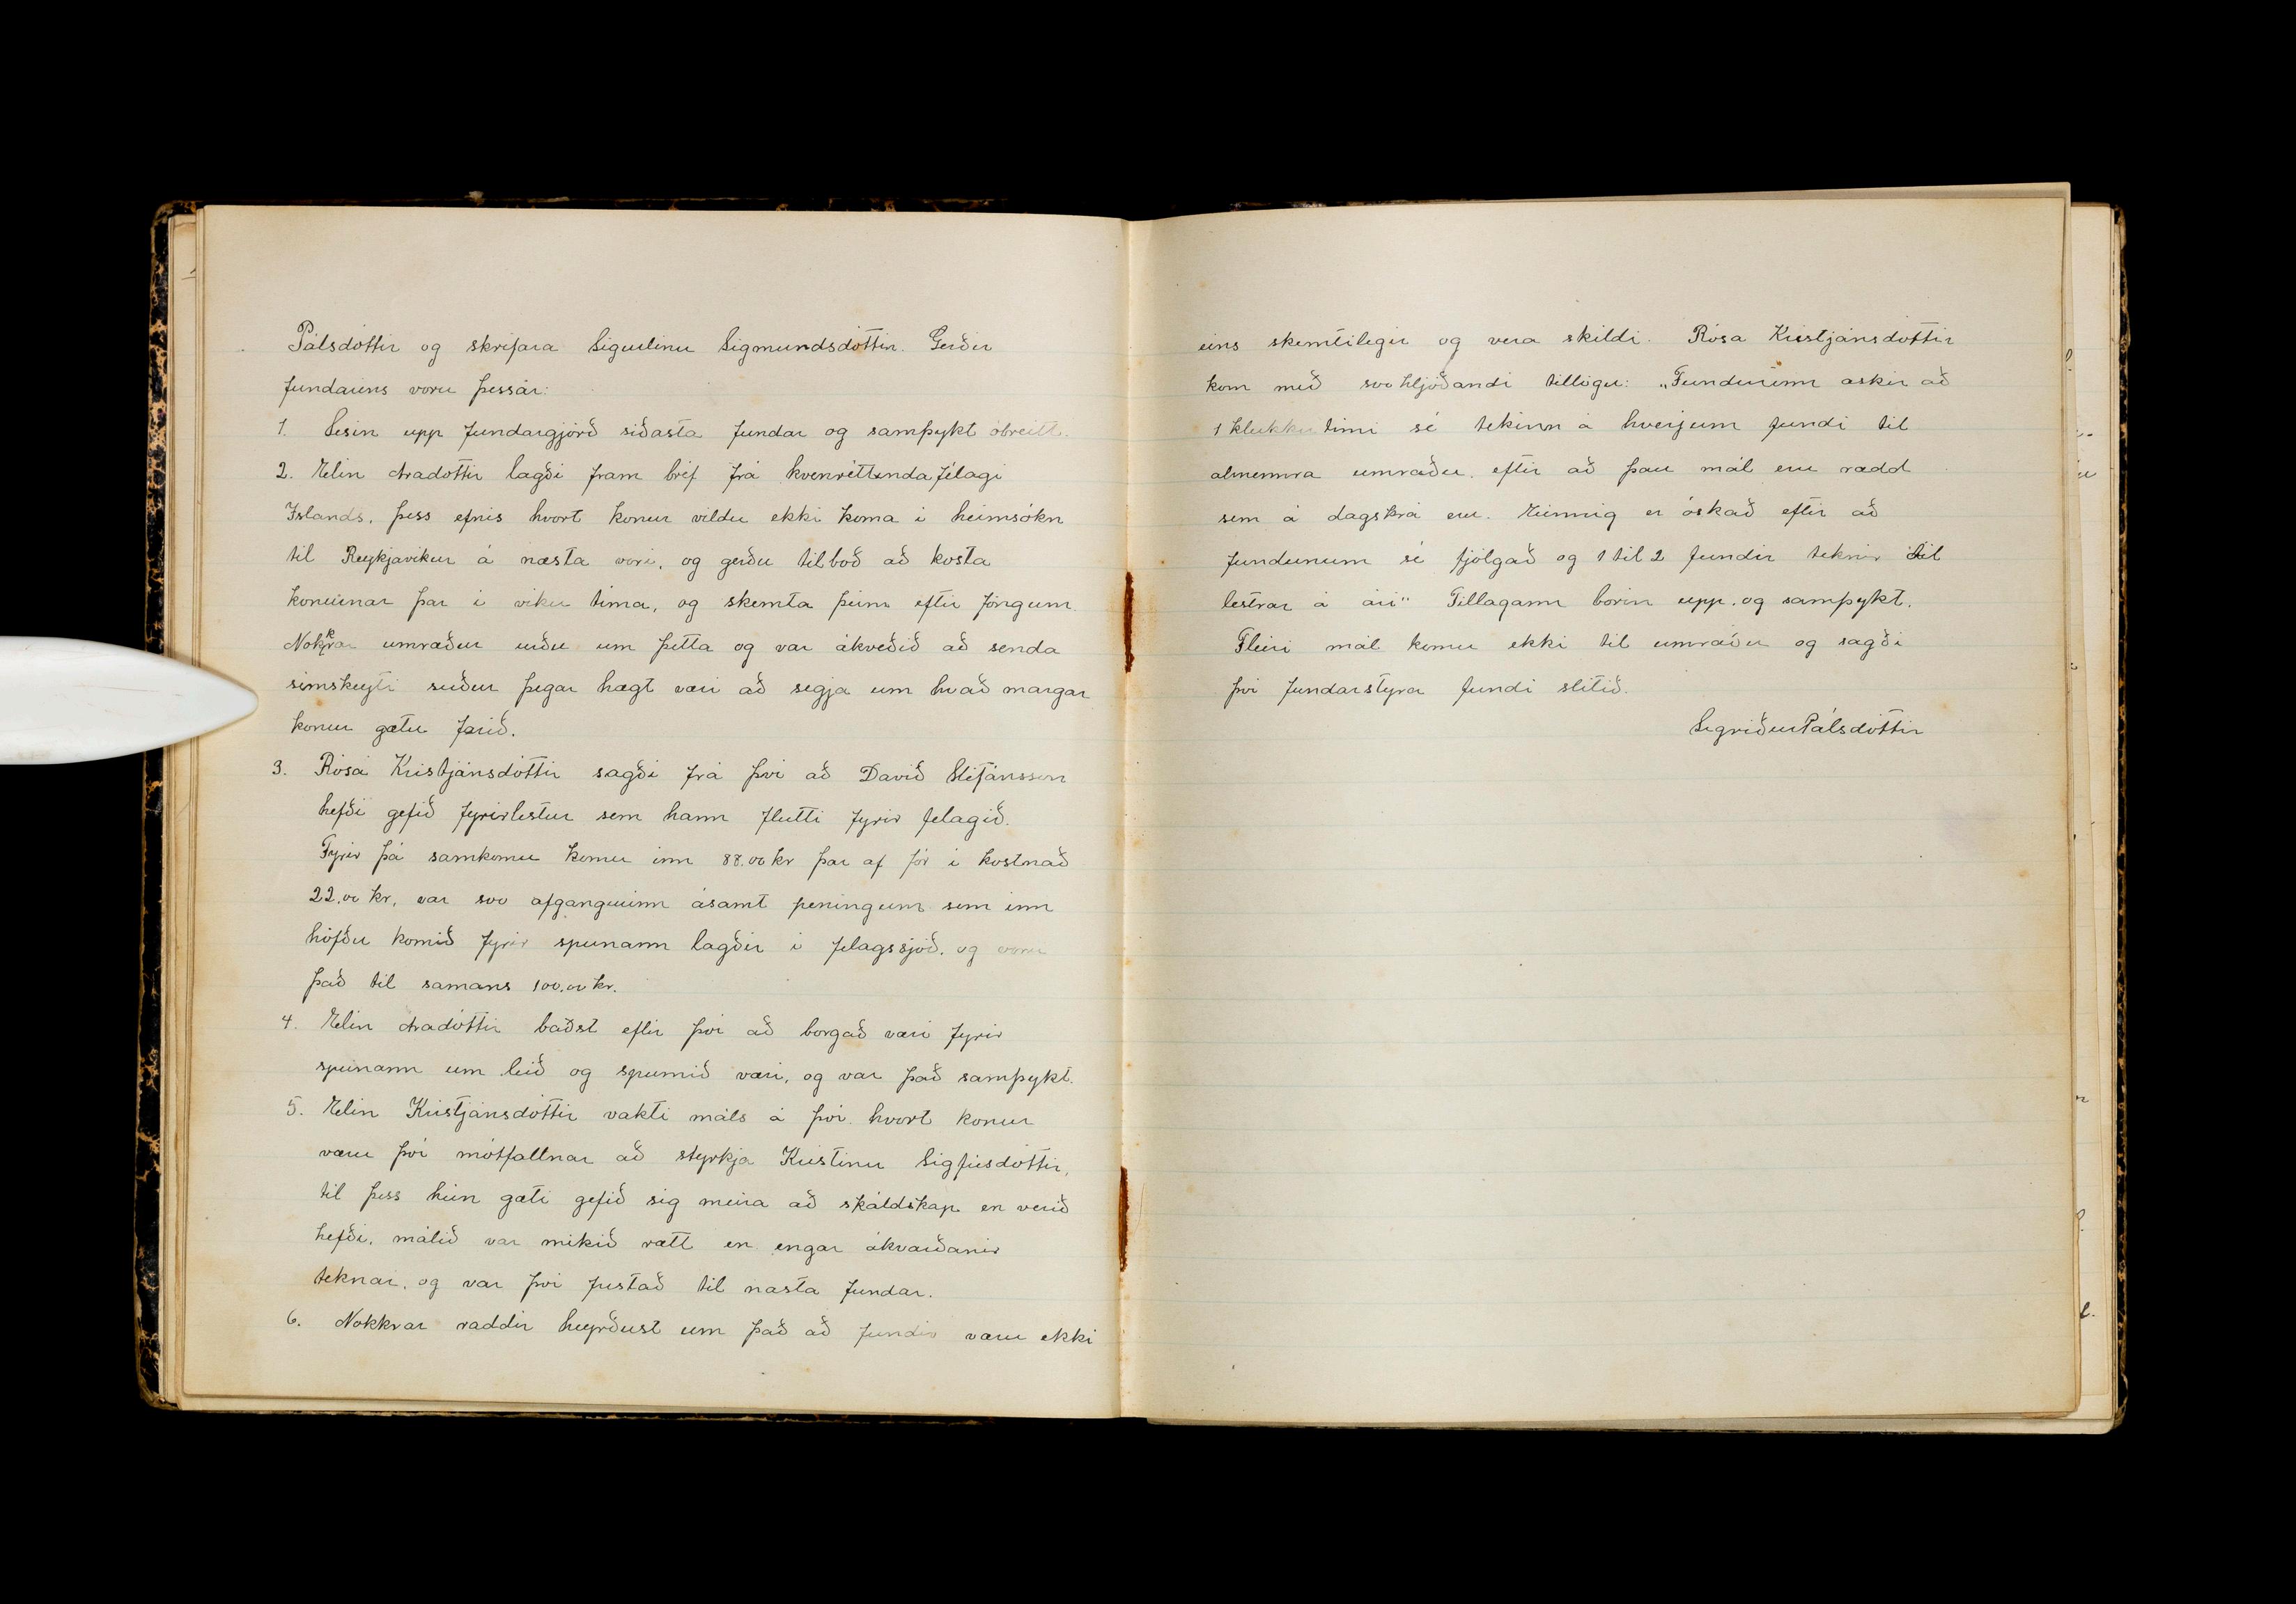 Pálsdóttir og skrifara Sigurlinu Sigmundsdóttir. Gerðir
fundarins voru þessar:
1. Lesin upp fundargjörð síðasta fundar og samþykt óbreitt.
2. Elin Aradóttir lagði fram bréf frá kvenréttindafélagi
Íslands, þess efnis hvort konur vildu ekki koma í heimsókn
til Reykjavikur á næsta vori, og gerðu tilboð að kosta
konurnar þar í viku tíma, og skemta þeim eftir föngum.
Nokkrar umræður urðu um þetta og var ákveðið að senda
simskeyti suður þegar hægt væri að segja um hvað margar
konur gætu farið.
3. Rósa Kristjánsdóttir sagði frá því að Davíð Stefánsson
hefði gefið fyrirlestur sem hann flutti fyrir felagið.
Fyrir þá samkomu komu inn 88.00 kr þar af fór í kostnað
22.00 kr, var svo afgangurinn ásamt peningum sem inn
höfðu komið fyrir spunann lagðir í felagssjóð, og voru
það til samans 100.00 kr.
4. Elin Aradóttir baðst eftir því að borgað væri fyrir
spunann um leið og spunnið væri, og var það samþykt.
5. Elin Kristjánsdóttir vakti máls á því hvort konur
væru því mótfallnar að styrkja Kristinu Sigfúsdóttir,
til þess hún gæti gefið sig meira að skáldskap en verið
hefði, málið var mikið rætt en engar ákvarðanir
teknar, og var því frestað til næsta fundar.
6. Nokkrar raddir heyrðust um það að fundir væru ekki
eins skemtilegir og vera skildi. Rósa Kristjánsdóttir
kom með svohljóðandi tillögu: „Fundurinn óskir að
1 klukkutimi sé tekinn á hverjum fundi til
almennra umræðu. eftir að þau mál eru rædd
sem á dagskrá eru. Einnig er óskað eftir að
fundunum sé fjölgað og 1 til 2 fundir teknir til
lestrar á ári" Tillagann borin upp. og samþykt.
Fleiri mál komu ekki til umræðu og sagði
því fundarstýra fundi slitið.
Sigríður Pálsdóttir